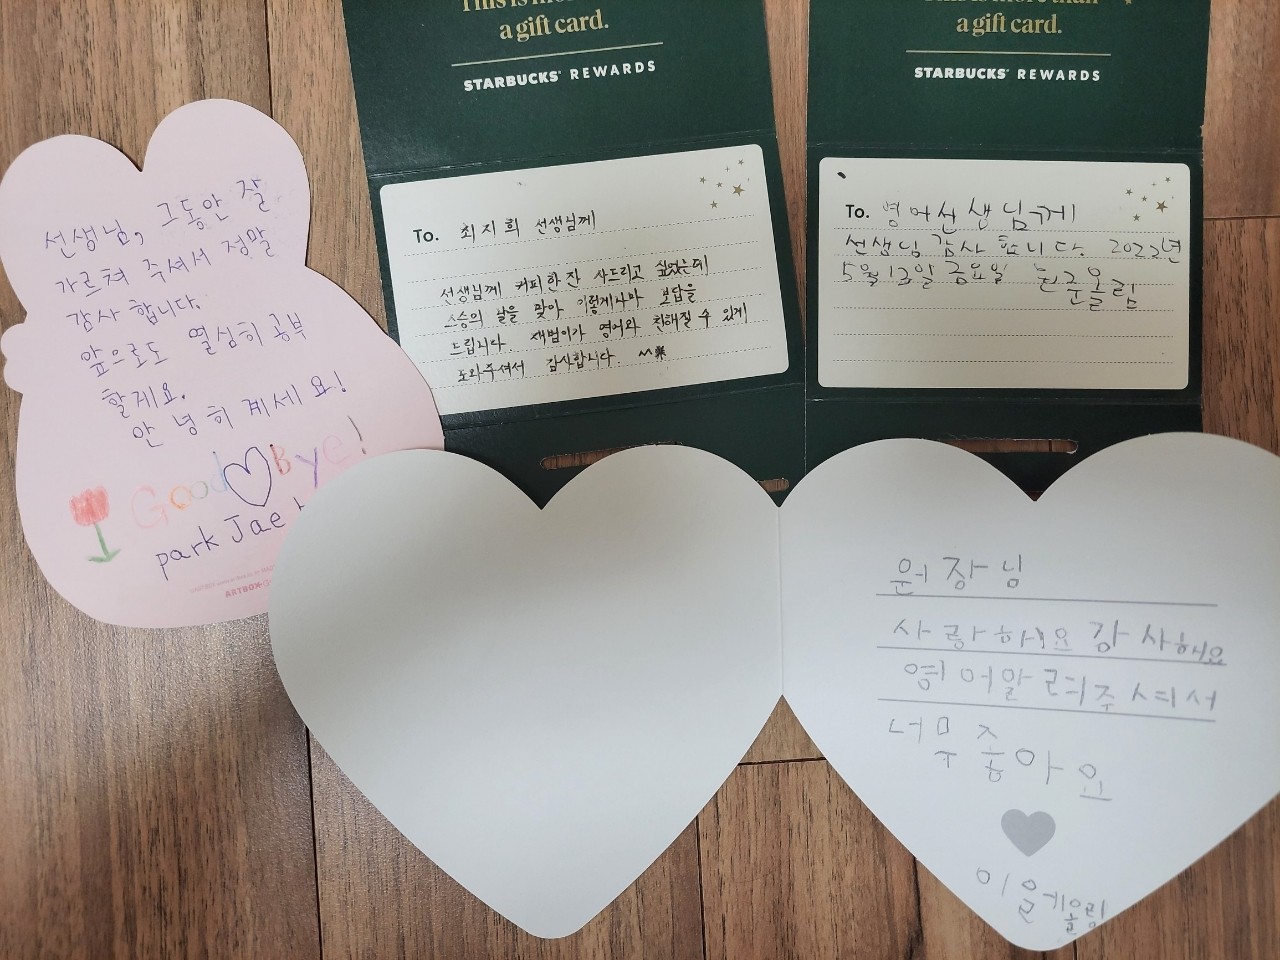 선생님, 그동안 잘
가르쳐 주셔서 정말
감사 합니다.
앞으로도 열심히 공부
할게요.
안녕히 계세요!
Good Bye!
park Jae
ARTBOX
a gift card.
STARBUCKS REWARDS
To. 최지희 선생님께
선생님께 커피한잔 사드리고 싶었는데
스승의 날을 맞아 이렇게나마 보답을
드립니다. 재범이가 영어와 친해질 수 있게
도와주셔서 감사합니다. ^^
This is more than
a gift card.
STARBUCKS REWARDS
To. 영어선생님께
선생님 감사합니다. 2022년
5월 13일 금요일 올림
원장님
사랑해요 감사해요
영어알려주셔서
너무 좋아요
올림